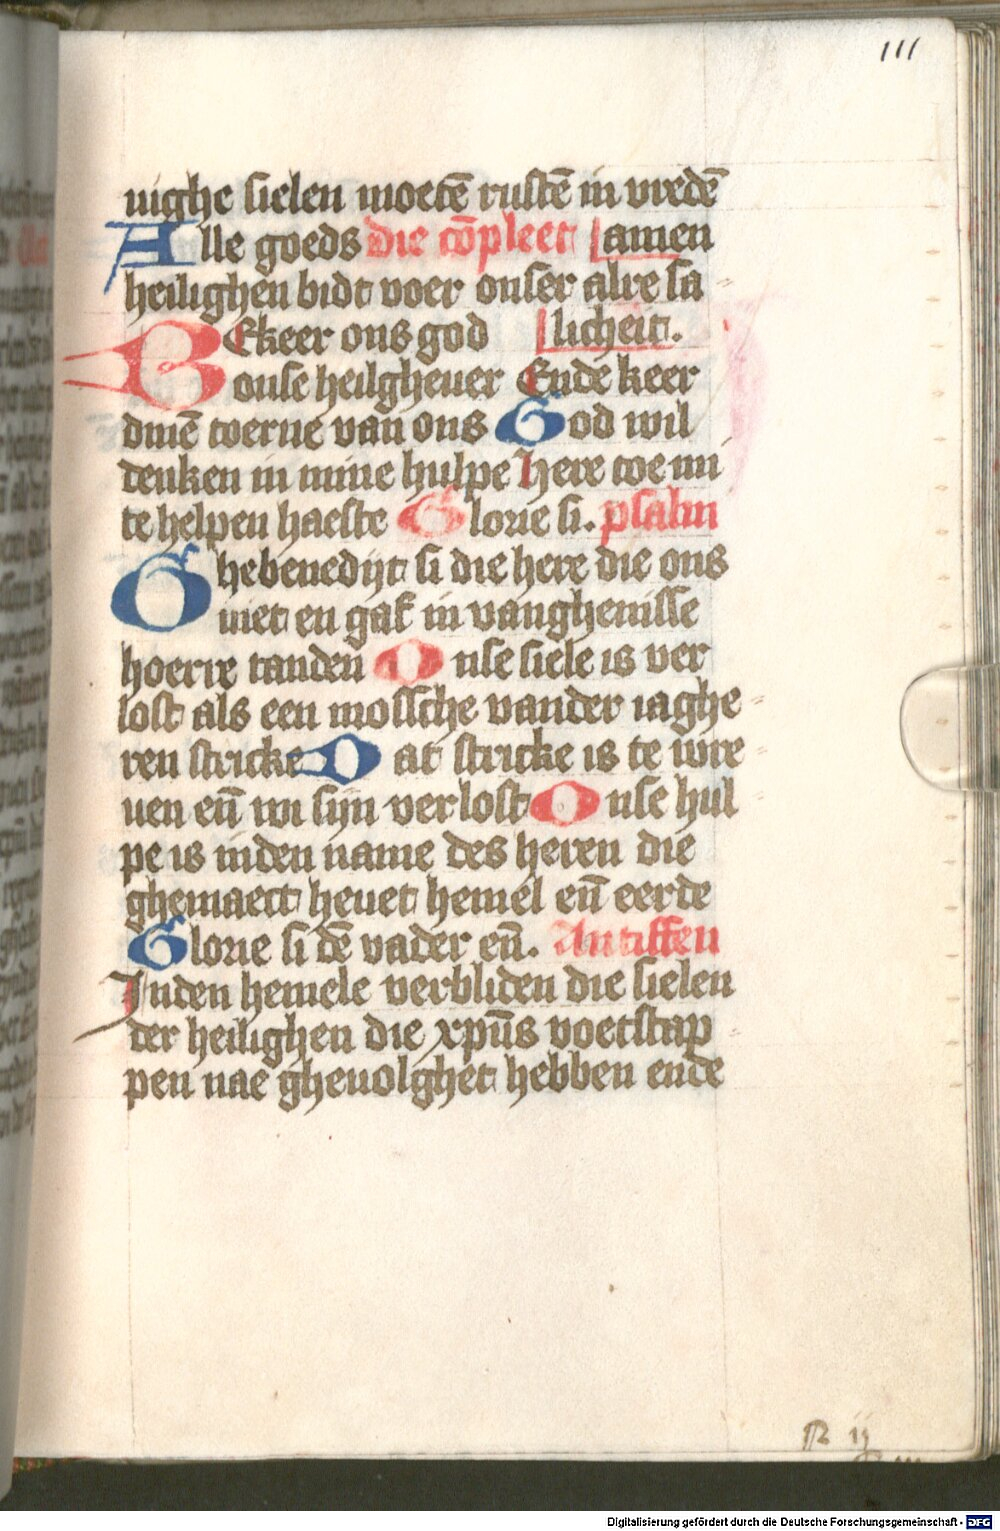 111
nighe sielen moetē rustē in vredē
Alle goeds die cōpleet amen
heilighen bidt voer onser alre sa
BEkeer ons god licheit.
onse heilgheuer Ende keer
dinē toerne van ons God wil
denken in mine hulpe Here toe mi
te helpen haeste Glorie si. psalm
Ghebenedijt si die here die ons
niet en gaf in vanghenisse
hoerre tanden Onse siele is ver
lost als een mossche vander iaghe
ren stricke Dat stricke is te wre
uen eñ wi sijn verlost Onse hul
pe is inden name des heren die
ghemaect heuet hemel eñ eerde
Glorie si dē vader eñ. Antiffen
Inden hemele verbliden die sielen
der heilighen die xpūs voetstap
pen nae gheuolghet hebben ende
ij
Digitalisierung gefördert durch die Deutsche Forschungsgemeinschaft - DFG